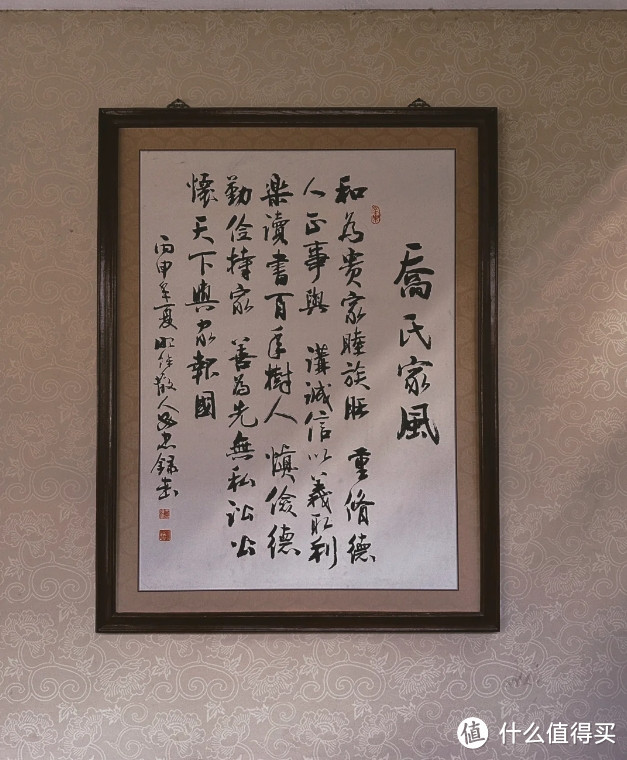 喬氏家風
和為贵家睦族旺 重脩德
人正事興 講誠信以義取利
樂讀書百年樹人 慎儉德
勤儉持家 善為先無私訟公
懷天下興家報國
丙申年夏
值 什么值得买